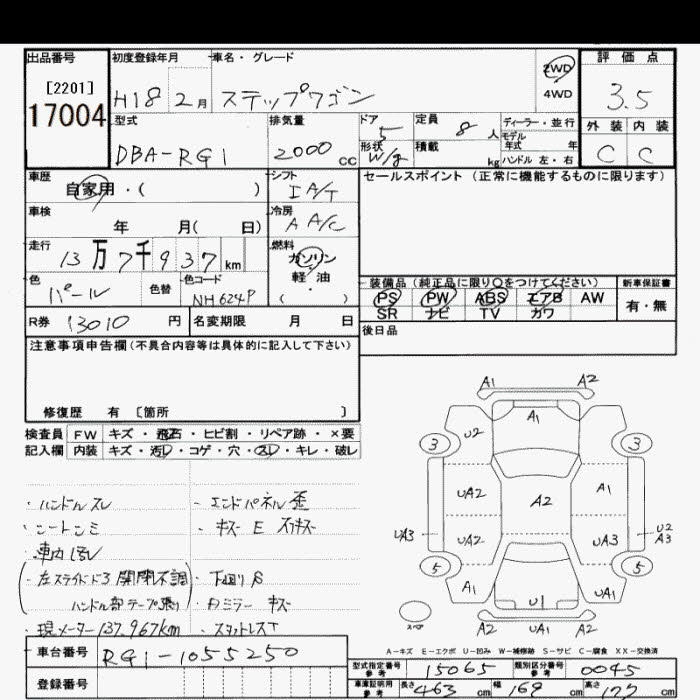 出品番号 初度登録年月 車名・グレード 2WD 4WD 評価点
[2201] 17004 H18 2月 ステップワゴン 3.5
型式 排気量 ドア 定員 ディーラー・並行 外装 内装
DBA-RG1 2000cc 5 8人 モデル年式 年 C C
形状 W/g 積載 kg ハンドル 左・右
車歴 自家用・( ) シフト IA/T セールスポイント(正常に機能するものに限ります)
車検 年 月( 日) 冷房 A A/C
走行 13万7千937km 燃料 ガソリン・軽油 ( )
色 パール 色替 色コード NH624P
装備品(純正品に限り○をつけてください) 新車保証書
PS PW ABS エアB AW 有・無
SR ナビ TV 革
R券 13010円 名変期限 月 日 後日品
注意事項申告欄(不具合内容等は具体的に記入して下さい)
修復歴 有 [箇所 ]
検査員 FW キズ・飛石・ヒビ割・リペア跡・×要
記入欄 内装 キズ・汚レ・コゲ・穴・スレ・キレ・破レ
・ハンドルスレ ・エンドパネル歪
・シートシミ
・車内
・左スライドドア開閉不調 ・下回りS
ハンドル部テープ張り ・Fミラー キズ
・現メーター137,967km ・スタットレスT
A1 A2
A1
U2
3 3
UA2 A2 A1
UA3 UA2 UA3 U2 A3
5 5
A1 U1 UA1
スペア A2 UA1 A2
A-キズ E-エクボ U-凹み W-補修跡 S-サビ C-腐食 XX-交換済
車台番号 RG1-1055250 型式指定番号 参考 15065 類別区分番号 参考 0045
登録番号 車庫証明用 参考 長さ 463cm 幅 169cm 高さ 177cm